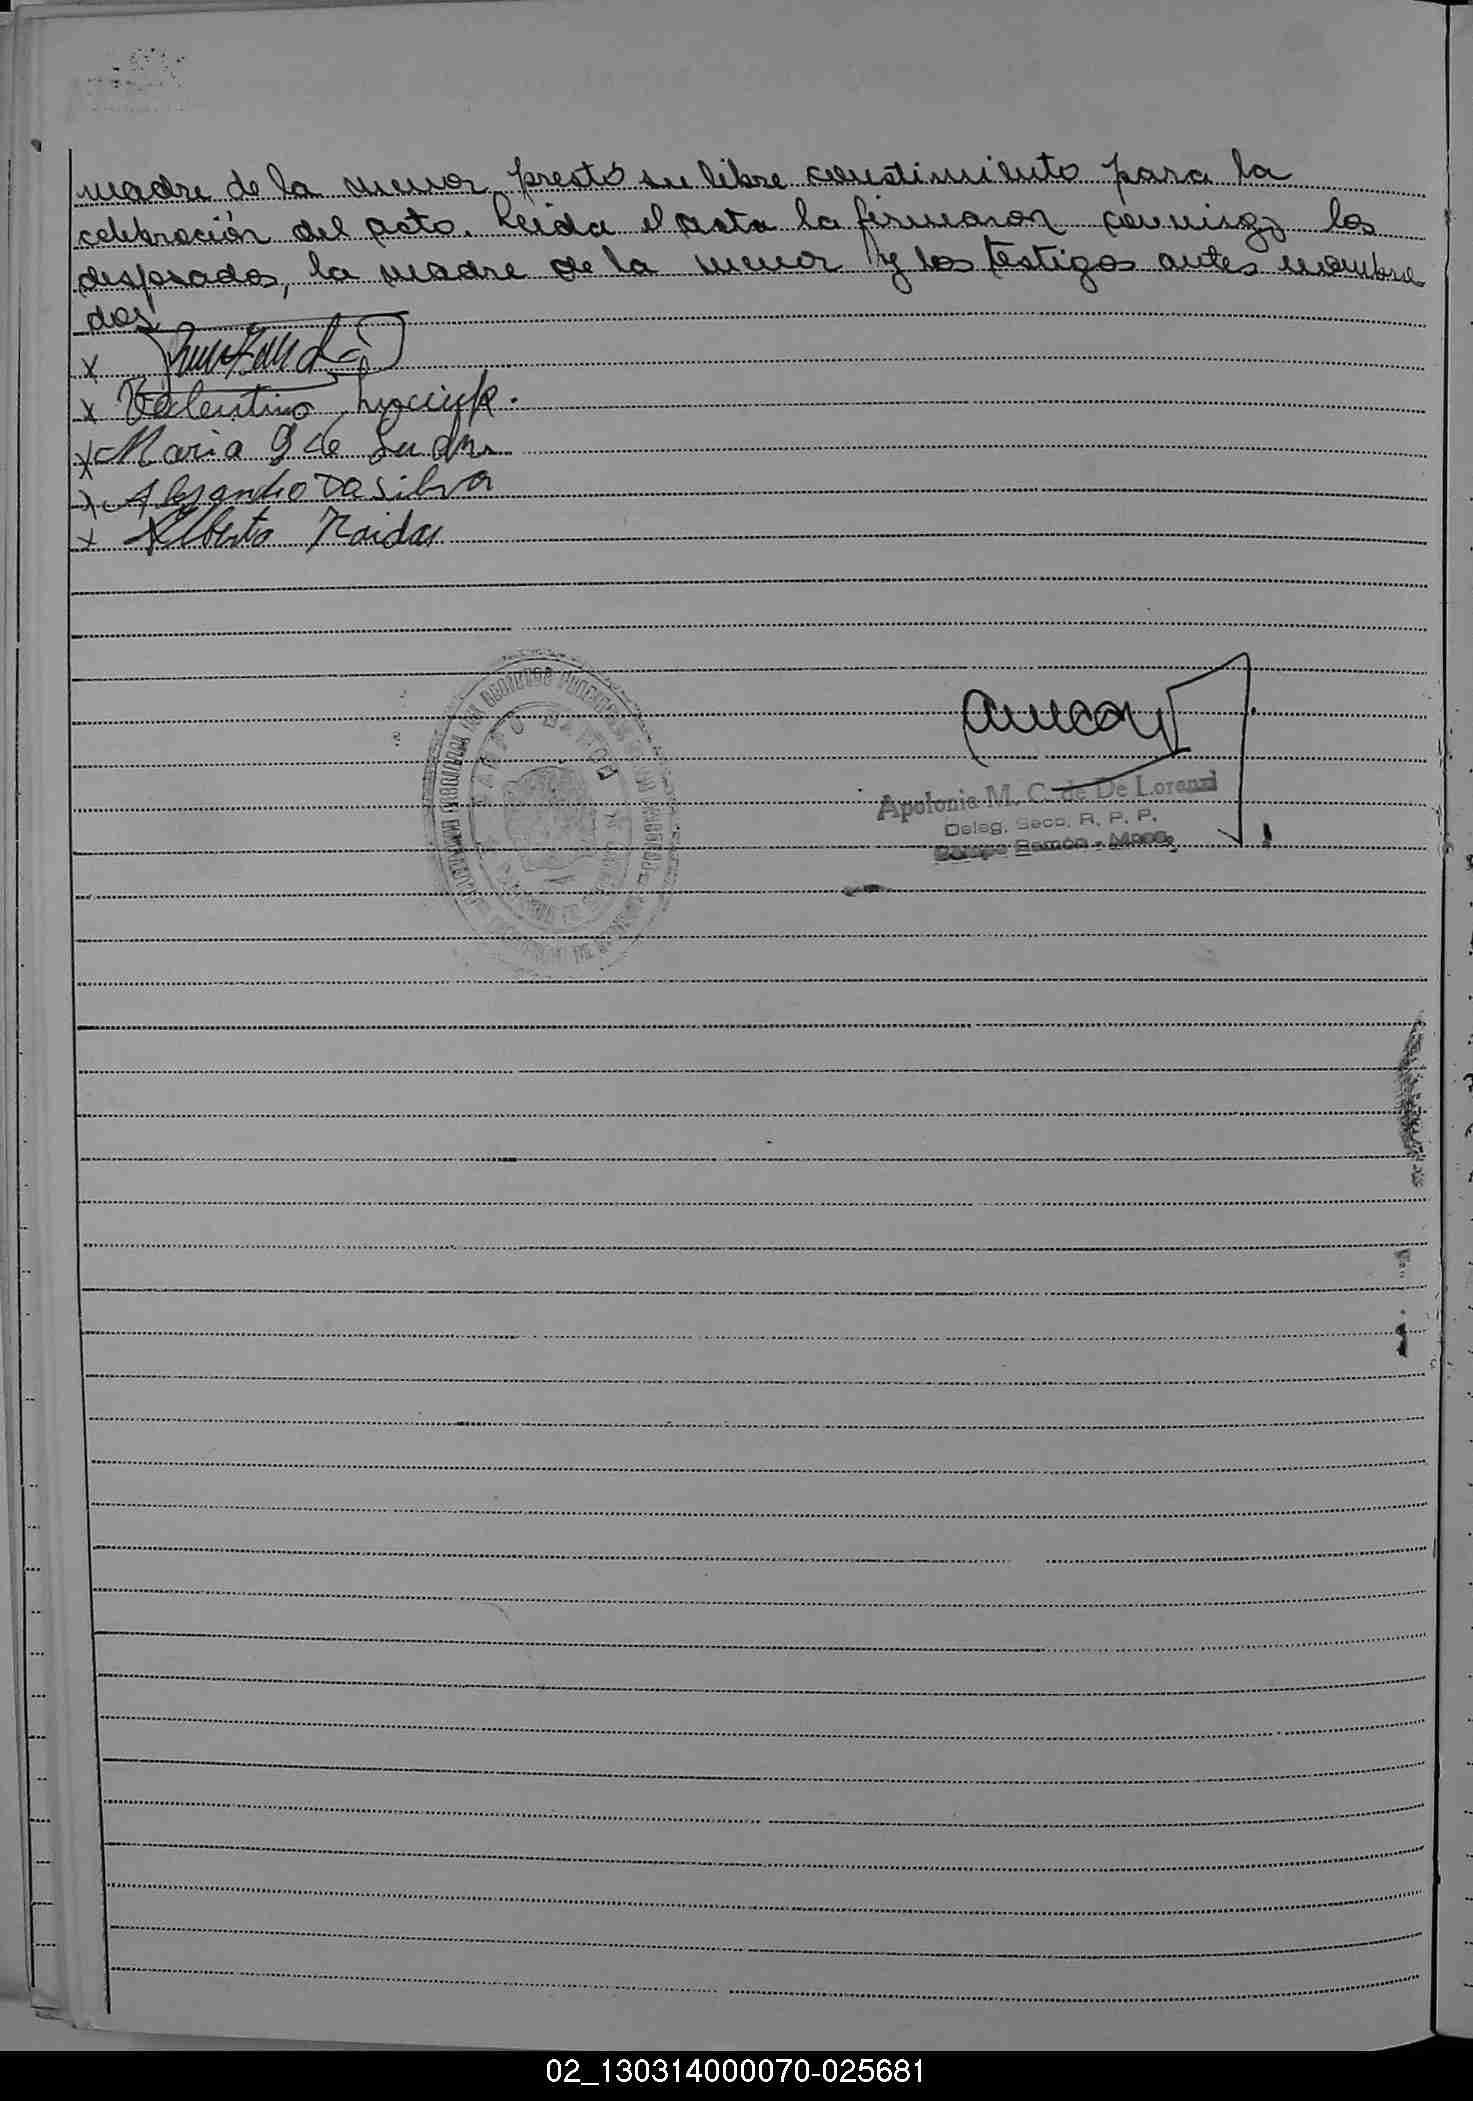 madre de la menor prestó su libre consentimiento para la
celebración del acto. Leida el acta la firmaron conmigo los
desposados, la madre de la menor y los testigos antes nombra
dos
x
x Valentino
x Maria G de
x Alejandro Da Silva
x Alberto Naidas
CAMPO RAMON
Apolonia M. C. de De Lorenzi
Deleg. Secc. R. P. P.
Campo Ramón - Mnes.
02_130314000070-025681